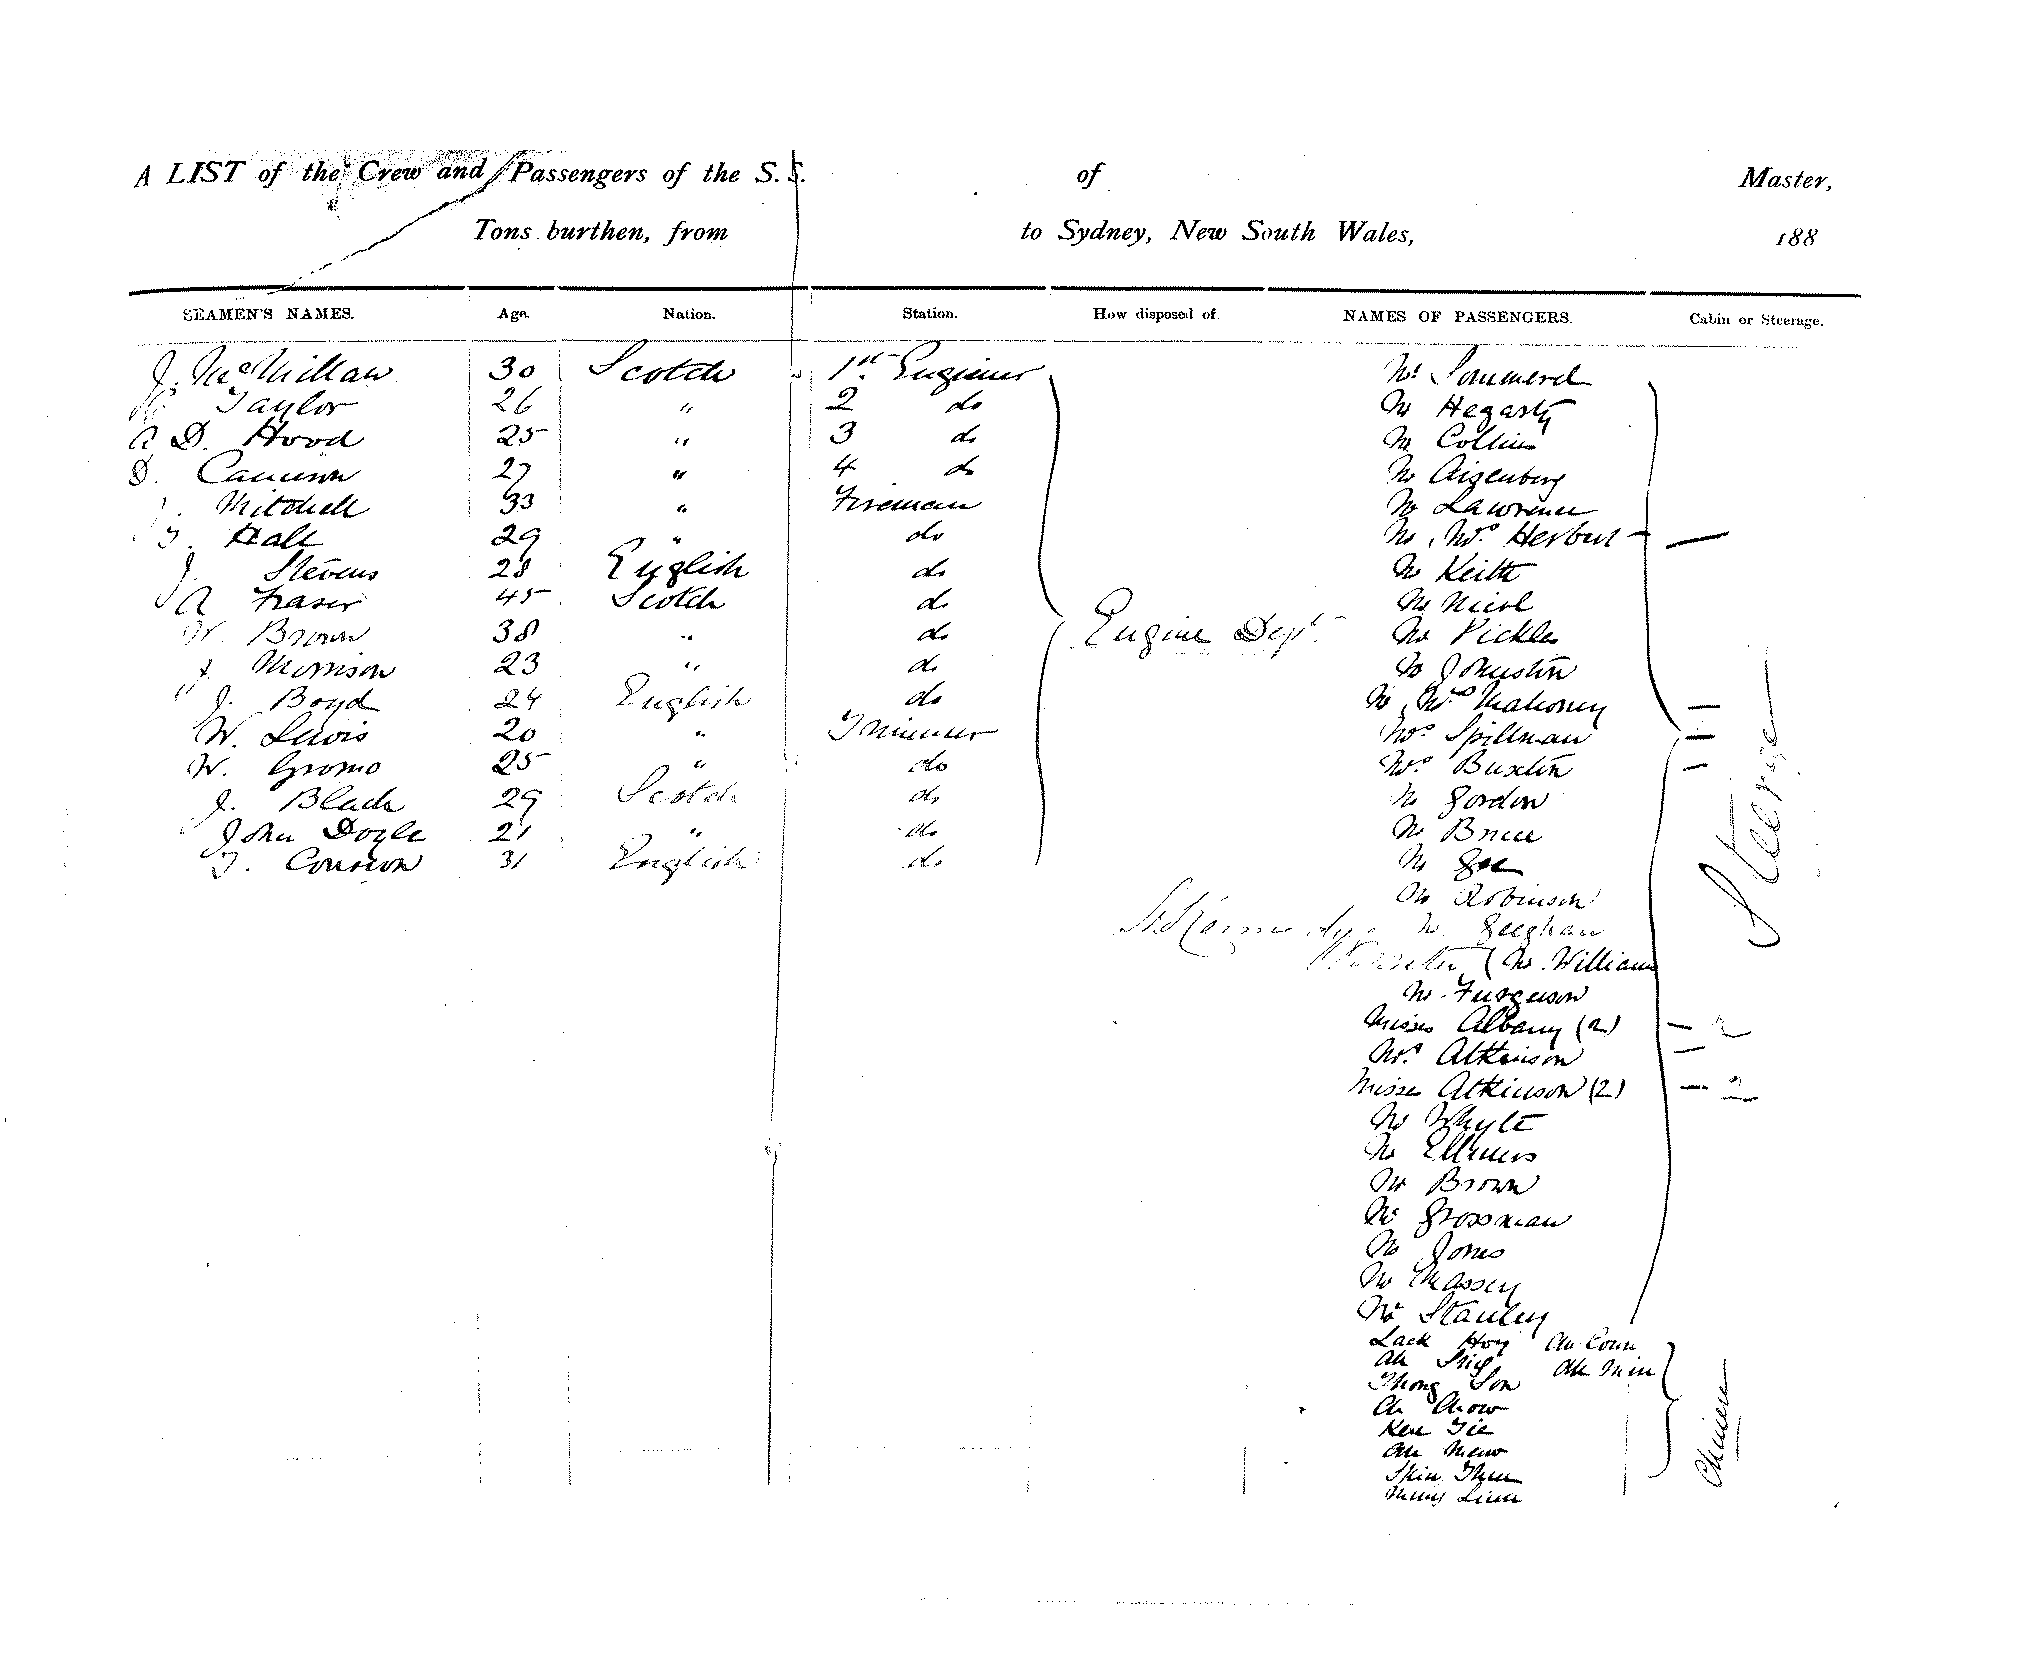 A LIST of the Crew and Passengers of the S.S. of Master,
Tons burthen, from to Sydney, New South Wales, 188
SEAMEN'S NAMES. Age. Nation. Station. How disposed of. NAMES OF PASSENGERS. Cabin or Steerage.
J. McMillan 30 Scotch 1st Engineer
Taylor 26 " 2 do
A D. Hood 25 " 3 do
D. Cameron 27 " 4 do
Mitchell 33 " Fireman
Hall 29 " do
J. Stevens 28 English do
A Fraser 45 Scotch do
W. Brown 38 " do
J. Morrison 23 " do
J. Boyd 24 English do
W. Lewis 20 " Trimmer
W. 25 " do
J. Black 29 Scotch do
John Doyle 21 " do
31 English do
Engine Dept.
Mr
Mr Hegarty
Mr Collins
Mr Aizenberg
Mr Lawrence
Mr, Mrs Herbert
Mr Keith
Mr Nicol
Mr Pickles
Mr Johnston
Mr, Mrs Mahoney
Mrs Spillman
Mrs Buxton
Mr Gordon
Mr Bruce
Mr Gee
Mr Robinson
Mr Geeghan
(Mr Williams
Mr Ferguson
Misses Albany (2) 2
Mrs Atkinson
Misses Atkinson (2) 2
Mr Whyte
Mr
Mr Brown
Mr Grossman
Mr Jones
Mr Massey
Mr Stanley
Steerage
Lack Hoy
Ah Ah Min
Thong Son
Ah Chow
Ken Tie
Ah
Chinese